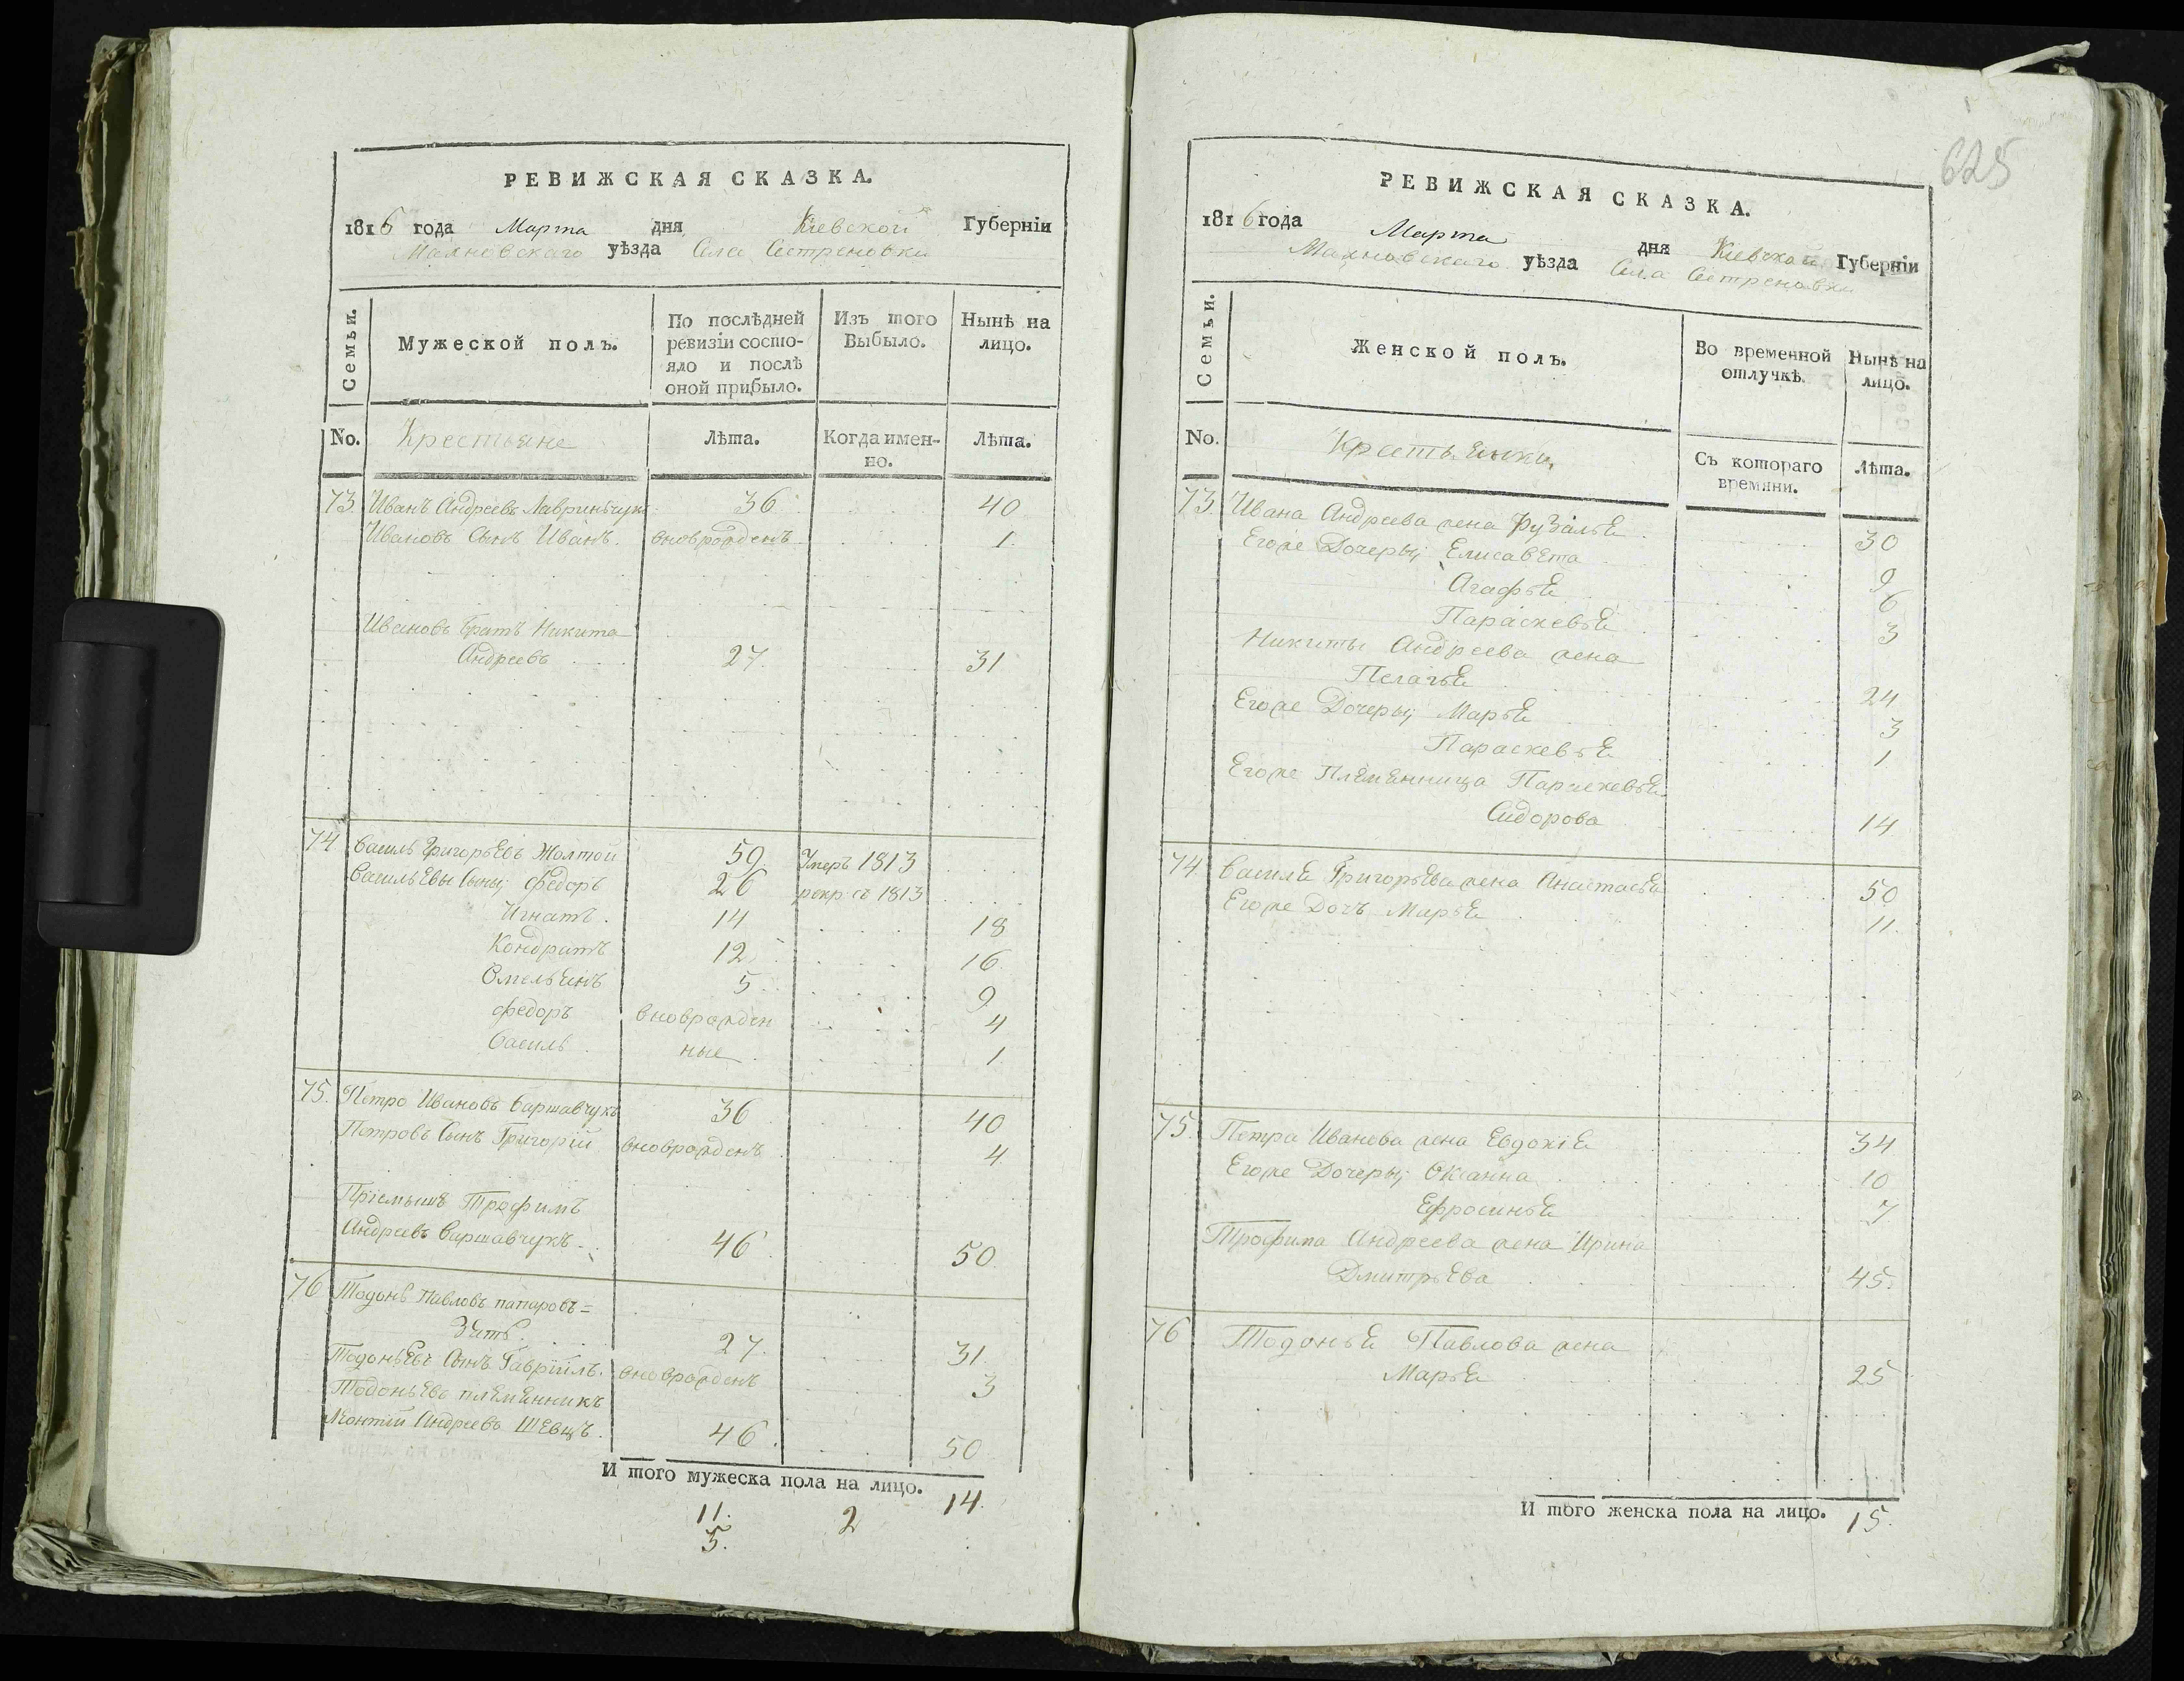 РЕВИЖСКАЯ СКАЗКА.
1816 года Марта дня Кіевской Губерніи
Махновскаго уѣзда Села Сестреновки
Семьи.
Мужеской полъ.
По послѣдней ревизіи состо-яло и послѣ оной прибыло.
Изъ того Выбыло.
Нынѣ на лицо.
No. Крестьяне Лѣта. Когда имен-но. Лѣта.
73 Иванъ Андреевъ Лавринчукъ 36 40
Ивановъ Сынъ Иванъ. вноврожденъ 1
Ивановъ братъ Никита
Андреевъ 27. 31
74 Василь Григорьевъ Жолтой 59 Умеръ 1813
Васильевы Сыны; Федоръ 26 рекр: съ 1813
Игнатъ. 14 18
Кондратъ 12 16
Омельянъ 5 9
Федоръ вноврожден 4
Василь ные 1
75. Петро Ивановъ Варшавчукъ 36 40
Петровъ Сынъ Григорій вноврожденъ 4
Пріемышъ Трофимъ
Андреевъ Варшавчукъ 46 50
76 Тодонъ Павловъ папаровъ=
Зять. 27. 31.
Тодоньевъ Сынъ Гаврійлъ. вноврожденъ 3
Тодоньевъ племенникъ
Леонтій Андреевъ Шевцъ. 46. 50
И того мужеска пола на лицо.
11. 2 14.
5.
625
РЕВИЖСКАЯ СКАЗКА.
1816 года Марта дня Кіевской Губерніи
Махновскаго уѣзда Села Сестреновки
Семьи.
Женской полъ.
Во временной отлучкѣ.
Нынѣ на лицо.
No. Крестьянки Съ котораго времяни. Лѣта.
73. Ивана Андреева жена Рузалья 30
Егоже Дочеры; Елисавета 9
Агафья 6
Параскевья 3
Никиты Андреева жена
Пелагья 24
Егоже Дочеры; Марья 3
Параскевья 1
Егоже Племянница Параскевья
Сидорова 14
74. Василя Григорьева жена Анастасья 50
Егоже Дочъ Марья 11.
75. Петра Иванова жена Евдокія 34
Егоже Дочеры; Оксанна 10
Ефросинья 7
Трофима Андреева жена Ирина
Дмитрьева 45.
76 Тодонья Павлова жена
Марья 25
И того женска пола на лицо. 15.